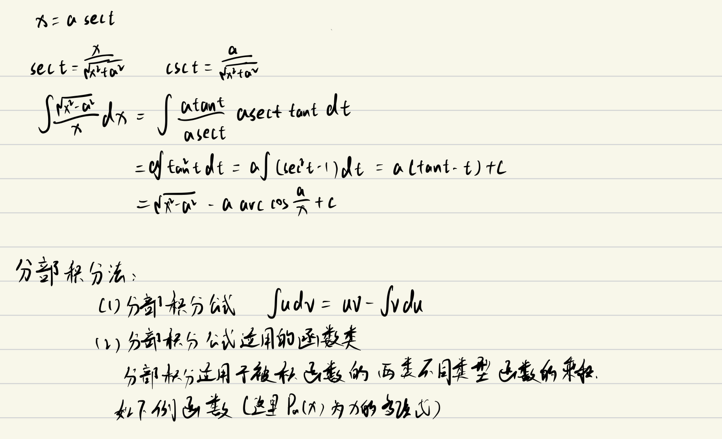 x = a sect
sect = x/√(x²+a²) csct = a/√(x²+a²)
∫ √(x²-a²)/x dx = ∫ atant/asect asect tant dt
= a∫tan²t dt = a∫(sec²t-1)dt = a(tant-t)+C
= √(x²-a²) - a arc cos a/x + c
分部积分法:
(1) 分部积分公式 ∫udv = uv - ∫vdu
(2) 分部积分公式适用的函数类
分部积分适用于被积函数的两类不同类型函数的乘积.
如下例函数 (这里 Pn(x) 为x的多项式)